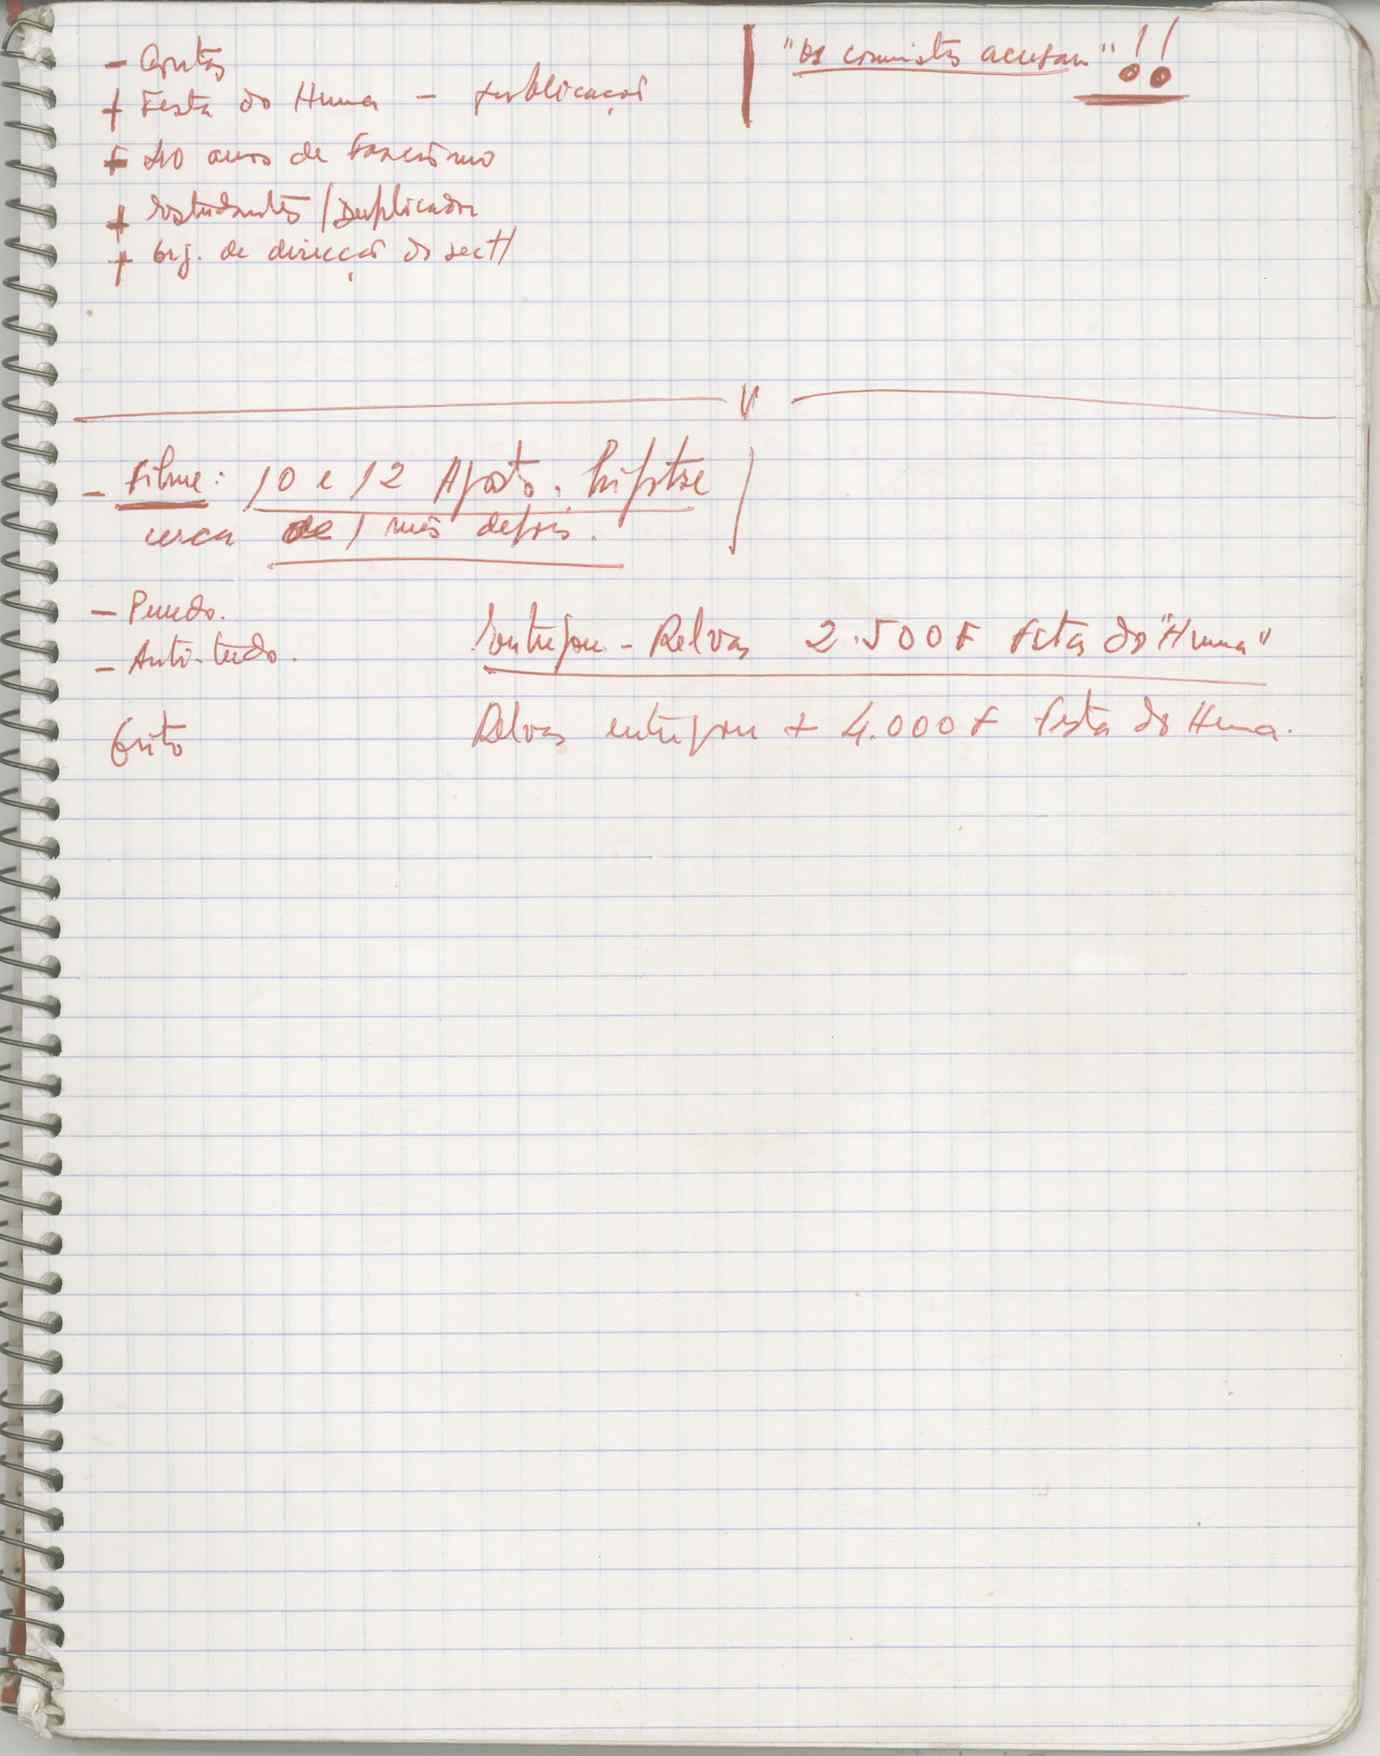 -
+ Festa do Huma - publicação
+ 40 anos de Fascismo
+ Estudantes / Duplicador
+ Org. de direcção do sect/
"Os comunistas acusam" !!
V
- Filme: 10 e 12 Agosto. hipótese
cerca de 1 mês depois.
-
- Anti-tudo.
Entregou - Relvas 2.500 F festa do "Huma"
Relvas entregou + 4.000 F festa do Huma.